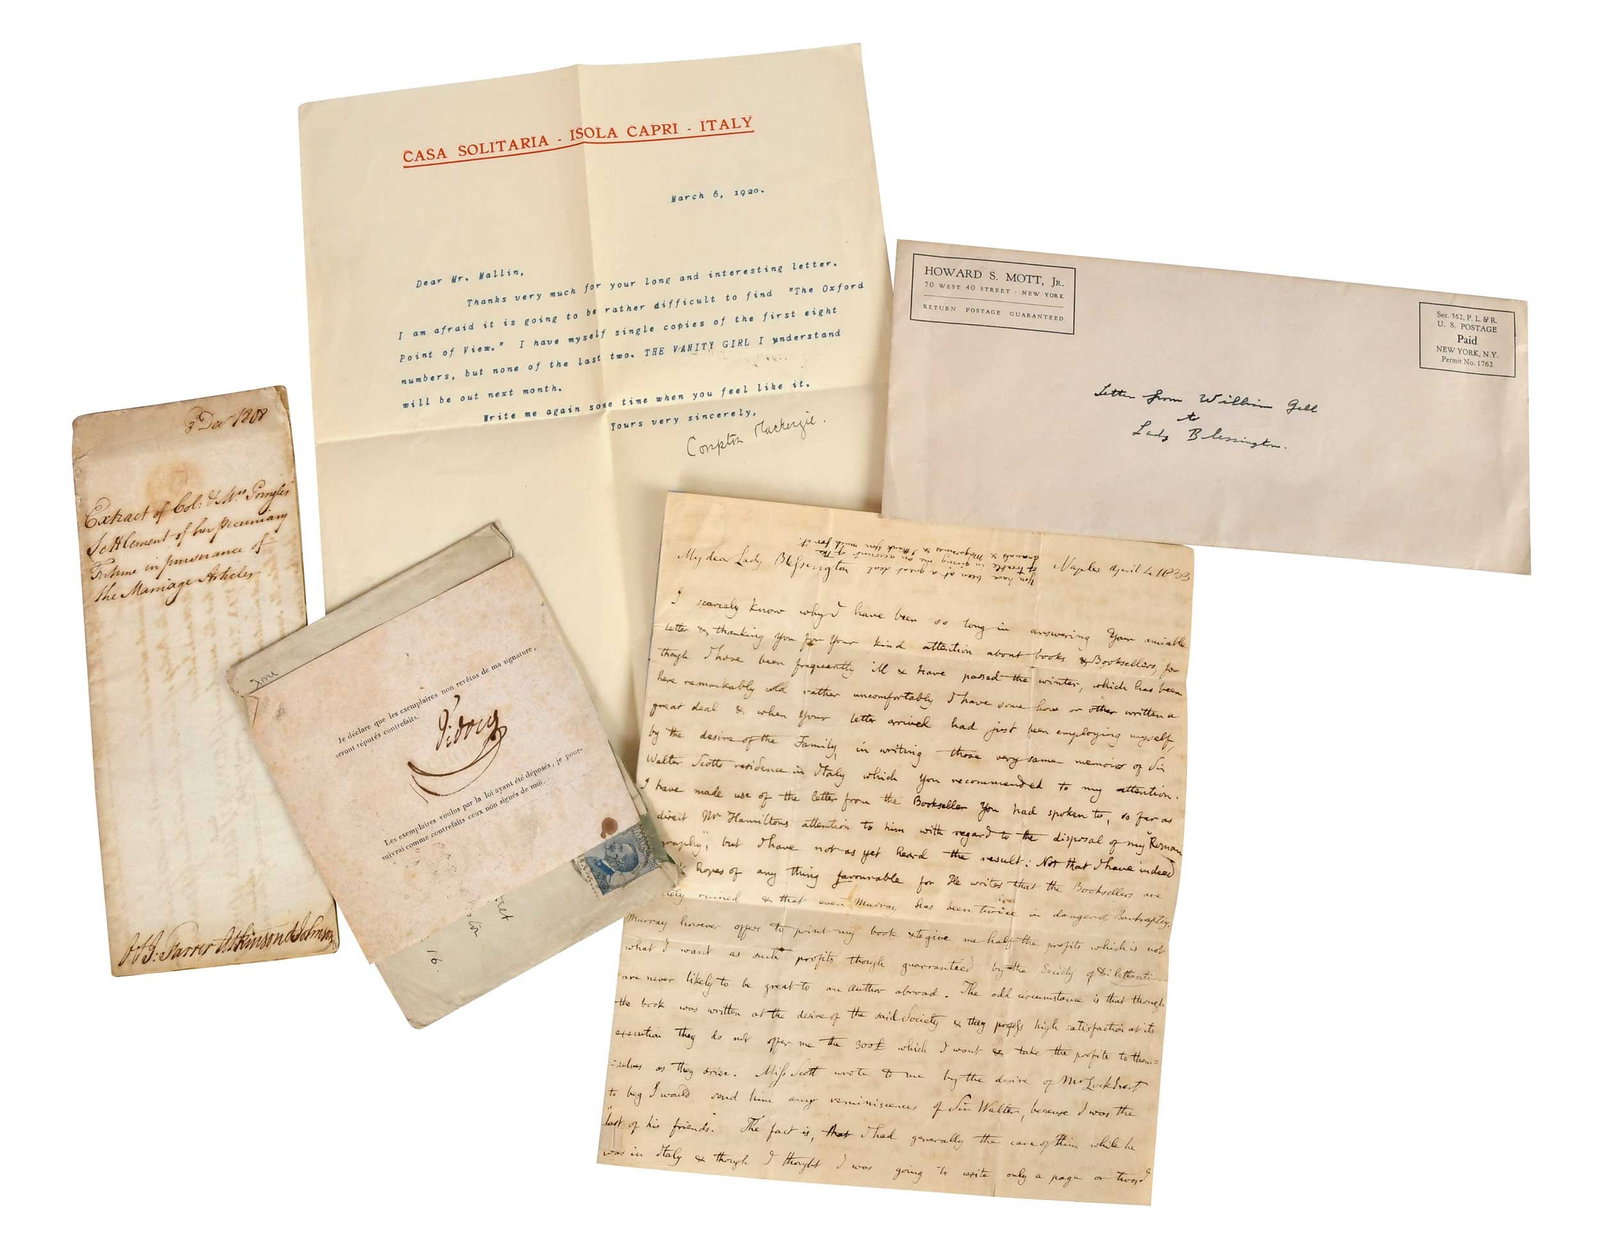 CASA SOLITARIA - ISOLA CAPRI - ITALY
March 6, 1920.
Dear Mr. Mallin,
Thanks very much for your long and interesting letter.
I am afraid it is going to be rather difficult to find "The Oxford
Point of View." I have myself single copies of the first eight
numbers, but none of the last two. THE VANITY GIRL I understand
will be out next month.
Write me again some time when you feel like it.
Yours very sincerely,
Compton Mackenzie.
HOWARD S. MOTT, Jr.
70 WEST 40 STREET · NEW YORK
RETURN POSTAGE GUARANTEED
Sec. 562, P. L. & R.
U. S. POSTAGE
Paid
NEW YORK, N.Y.
Permit No. 1762
Letter from William Gell
to
Lady Blessington.
3 Dec 1808
Extract of Col: & Mrs
Settlement of her pecuniary
Fortune in pursuance of
the Marriage Articles
Farrer Atkinson &
Je déclare que les exemplaires non revêtus de ma signature,
seront réputés contrefaits.
Vidocq
Les exemplaires voulus par la loi ayant été déposés, je pour-
suivrai comme contrefaits ceux non signés de moi.
16.
My dear Lady Blessington
Naples April 4 1833
you have been at a great deal
of trouble in giving me an account of the
Annuals & Magazines & I thank you much for it.
I scarcely know why I have been so long in answering your amiable
letter & thanking you for your kind attention about books & Booksellers, for
though I have been frequently ill & have passed the winter, which has been
here remarkably cold rather uncomfortably I have some how or other written a
great deal & when your letter arrived had just been employing myself
by the desire of the Family, in writing those very same memoirs of Sir
Walter Scotts residence in Italy which you recommended to my attention.
I have made use of the letter from the Bookseller you had spoken to, so far as
direct Mr Hamiltons attention to him with regard to the disposal of my "Roman
graphy", but I have not as yet heard the result: Not that I have indeed
hopes of any thing favourable for He writes that the Booksellers are
ruined & that even Murray has been twice in danger of Bankruptcy.
Murray however offers to print my book & to give me half the profits which is not
what I want as such profits though guaranteed by the Society of Dilettanti
are never likely to be great to an author abroad. The odd circumstance is that though
the book was written at the desire of the said Society & they profess high satisfaction at its
execution they do not offer me the 300£ which I want & take the profits to them=
=selves as they arise. Miss Scott wrote to me by the desire of Mr Lockhart
to beg I would send him any reminiscences of Sir Walter, because I was the
"last of his friends." The fact is, that I had generally the care of him while he
was in Italy & though I thought I was going to write only a page or two